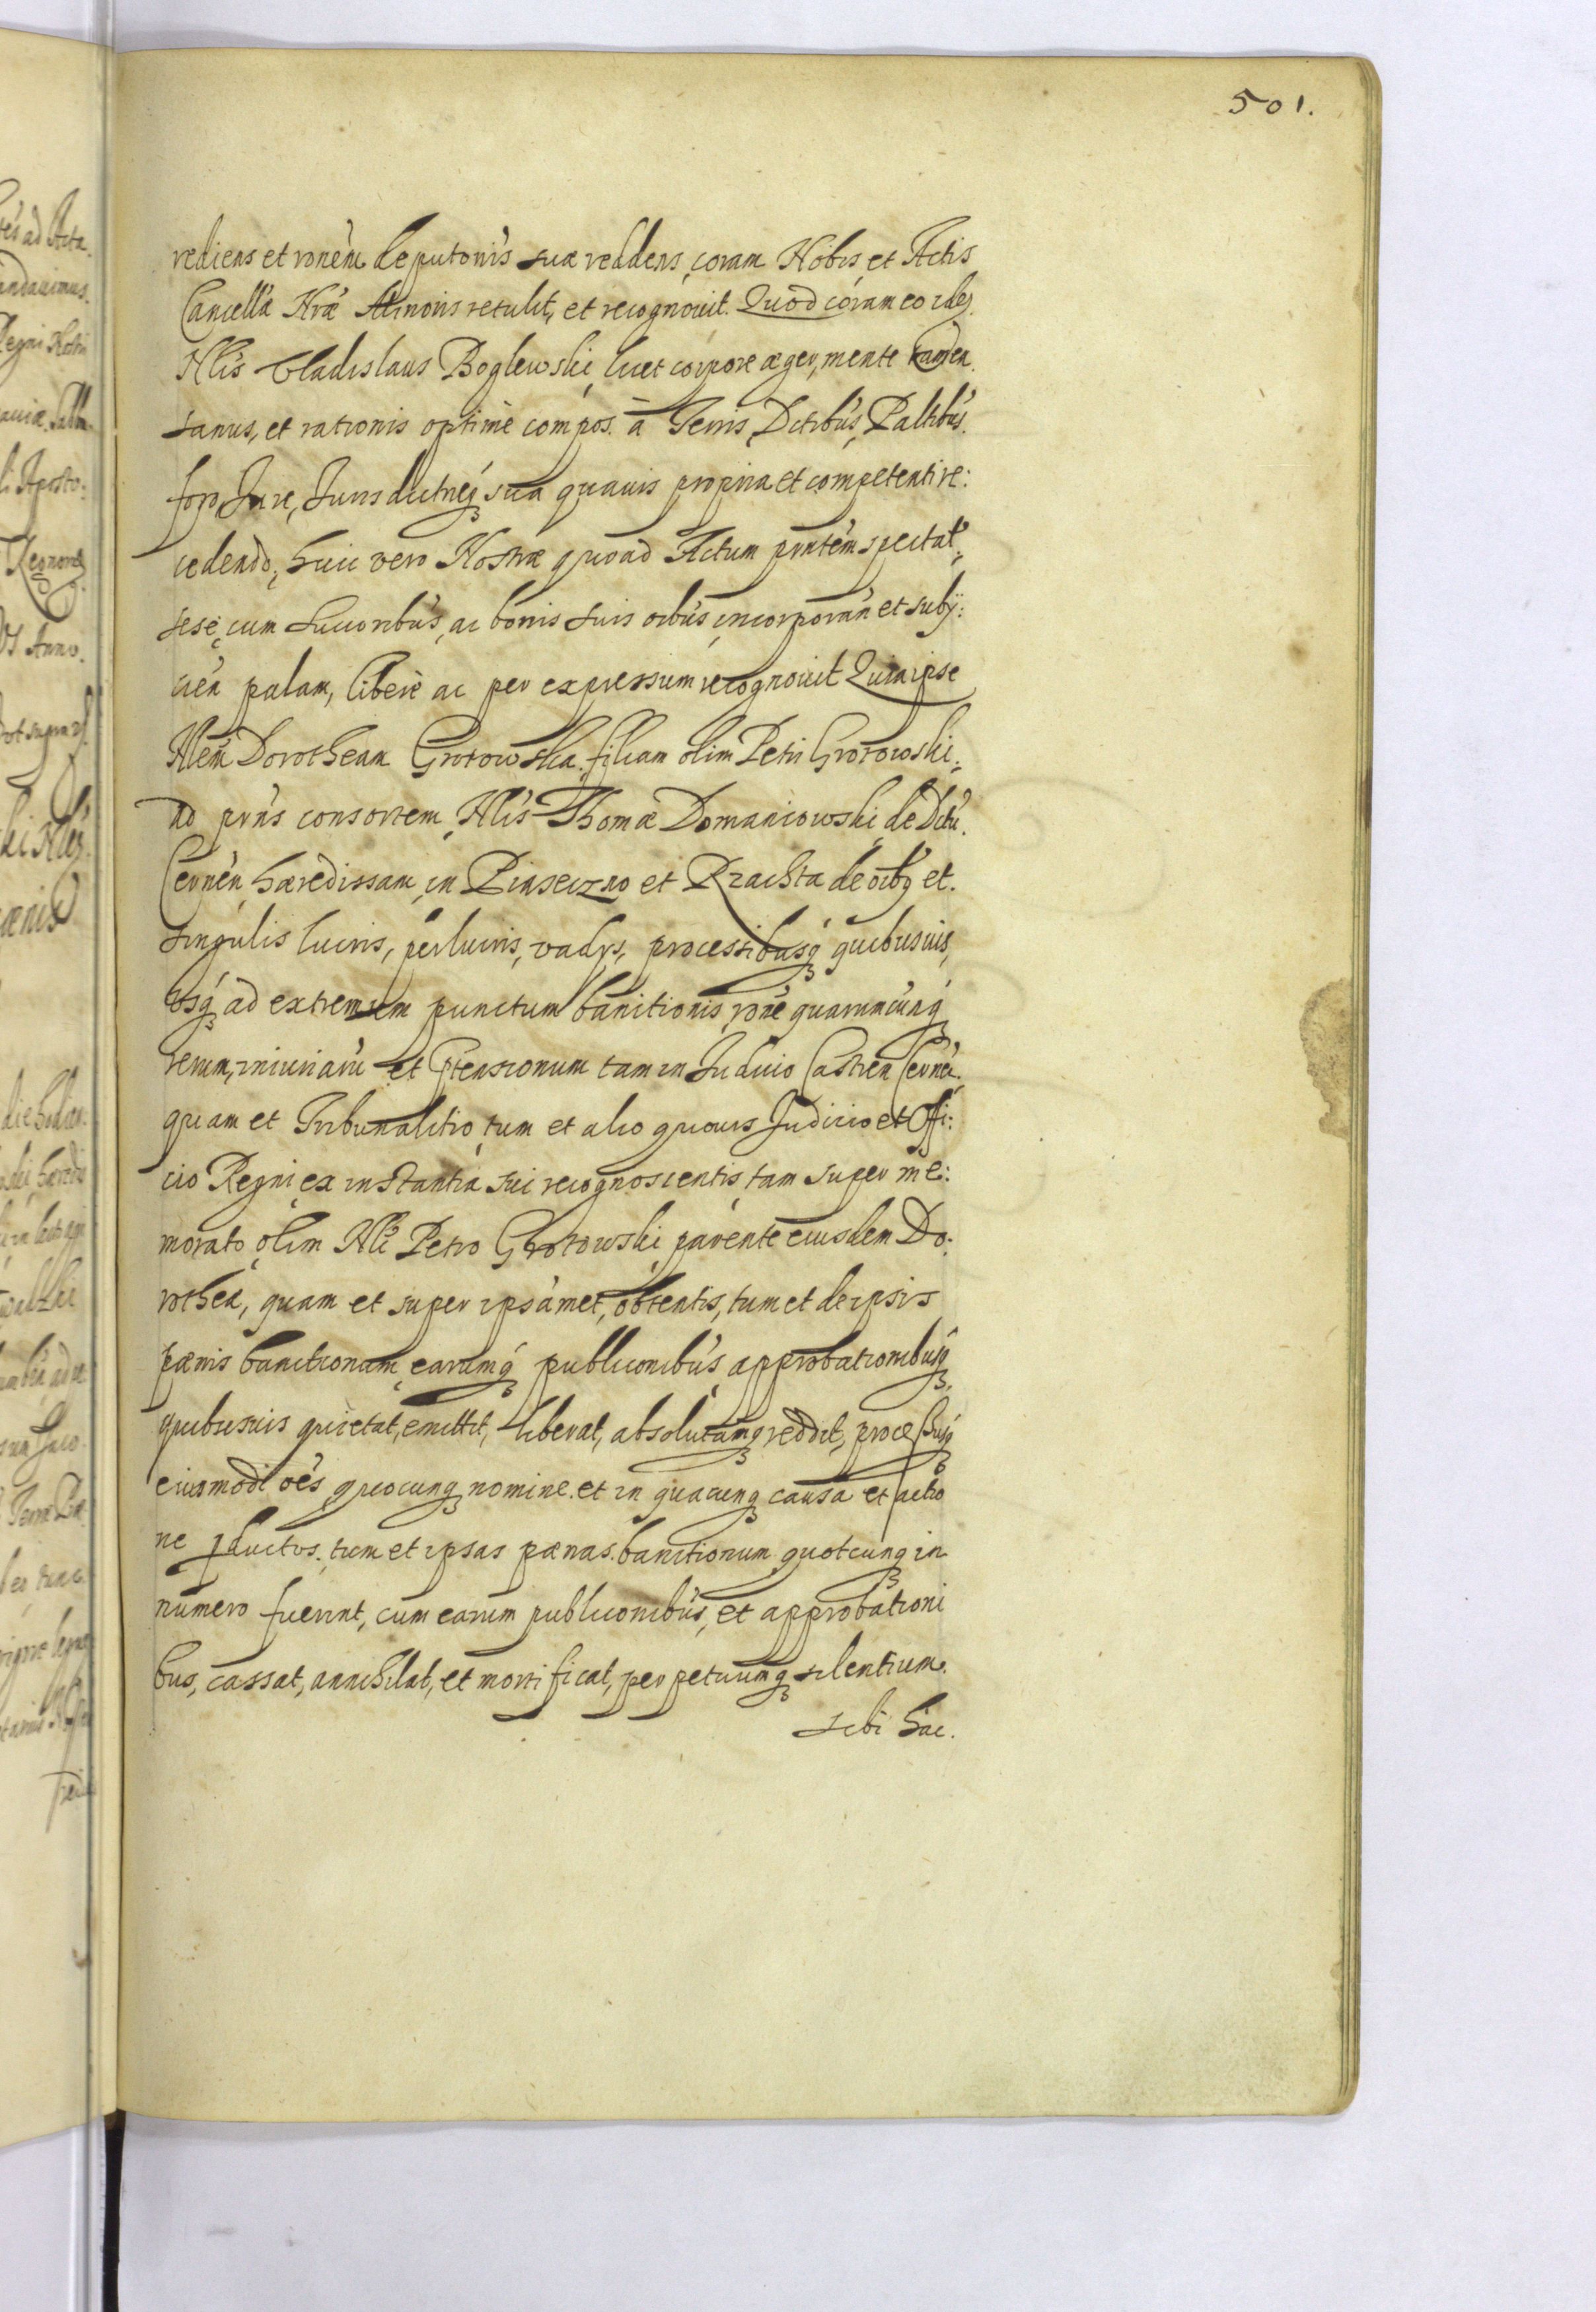 501.
rediens et rõnẽm deputõnis suæ reddens, coram Nobis et Actis
Cancellæ Nræ Minoris retulit, et recognouit. Quod coram eo ide͂
Nlis Vladislaus Boglewski, licet corpore æger, mente tamen
sanus, et rationis optimè compos. à Terris, Dctibus, Paltibus
foro Jure, Jurisdictneq̃ sua quauis propria et competenti re:
cedendo, huic vero Nostræ quoad Actum pñtem spectat,
sese, cum succoribus, ac bonis suis oibus incorporan̄ et subij:
cien̄ palam, liberè ac per expressum recognouit Quia ipse
Nlem Dorotheam Grotowska. filiam olim Petri Grotowski,
ad prñs consortem, Nlis Thomæ Domaniowski, de Dctu
Cernen̄, hæredissam, in Piaseczno et Rzachta de oibq̃ et.
singulis lucris, perlucris, vadijs, processibusq̃ quibusuis,
vsq̃ ad extremum punctum banitionis rõne quarumcunq̃
rerum, iniuriarũ et Ptensionum tam in Judicio Castren̄ Cernen̄
quam et Tribunalitio, tum et alio quouis Judicio et Offi:
cio Regni, ex instantia sui recognoscentis, tam super me:
morato, olim Nli Petro Grotowski, parente eiusdem Do:
rotheæ, quam et super ipsamet, obtentis, tum et de ipsis
pænis banitionum, earumq̃ publicõnibus, approbationibusq̃,
quibusuis quietat, emittit, liberat, absolutamq̃ reddit, processusq̃
eiusmodi oẽs quocunq̃ nomine. et in quacunq̃ causa et actio
ne pductos. tum et ipsas pænas. banitionum, quotcunq̃ in
numero fuerint, cum earum publicõnibus, et approbationi
bus, cassat, annihilat, et mortificat, perpetuumq̃ silentium.
sibi hac.